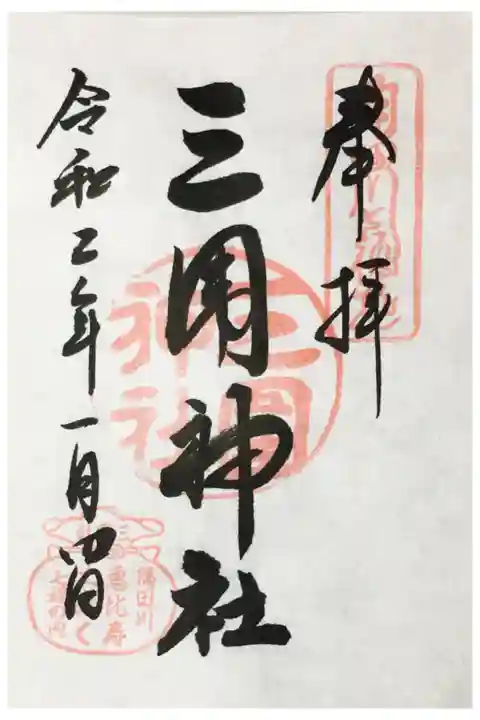 奉拝
三囲神社
三囲神社
令和二年一月四日
隅田川
恵比寿
七福の内